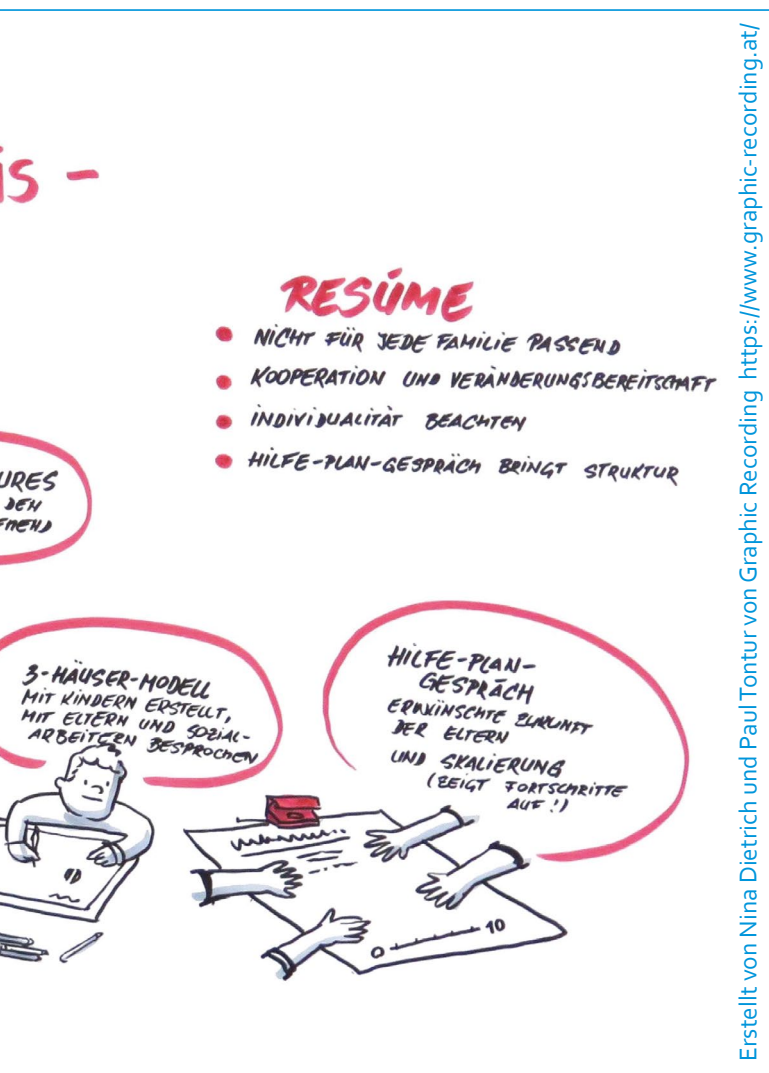 is -
RESÚME
NICHT FÜR JEDE FAMILIE PASSEND
KOOPERATION UND VERÄNDERUNGSBEREITSCHAFT
INDIVIDUALITÄT BEACHTEN
HILFE-PLAN-GESPRÄCH BRINGT STRUKTUR
URES
DEN
3-HÄUSER-MODELL
MIT KINDERN ERSTELLT,
MIT ELTERN UND SOZIAL-
ARBEITERN BESPROCHEN
HILFE-PLAN-
GESPRÄCH
ERWÜNSCHTE ZUKUNFT
DER ELTERN
UND SKALIERUNG
(ZEIGT FORTSCHRITTE
AUF!)
0 10
Erstellt von Nina Dietrich und Paul Tontur von Graphic Recording https://www.graphic-recording.at/